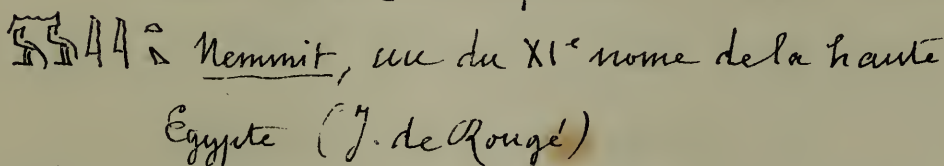 Nemmit, uu du XIᵉ nome de la haute
Egypte (J. de Rougé)